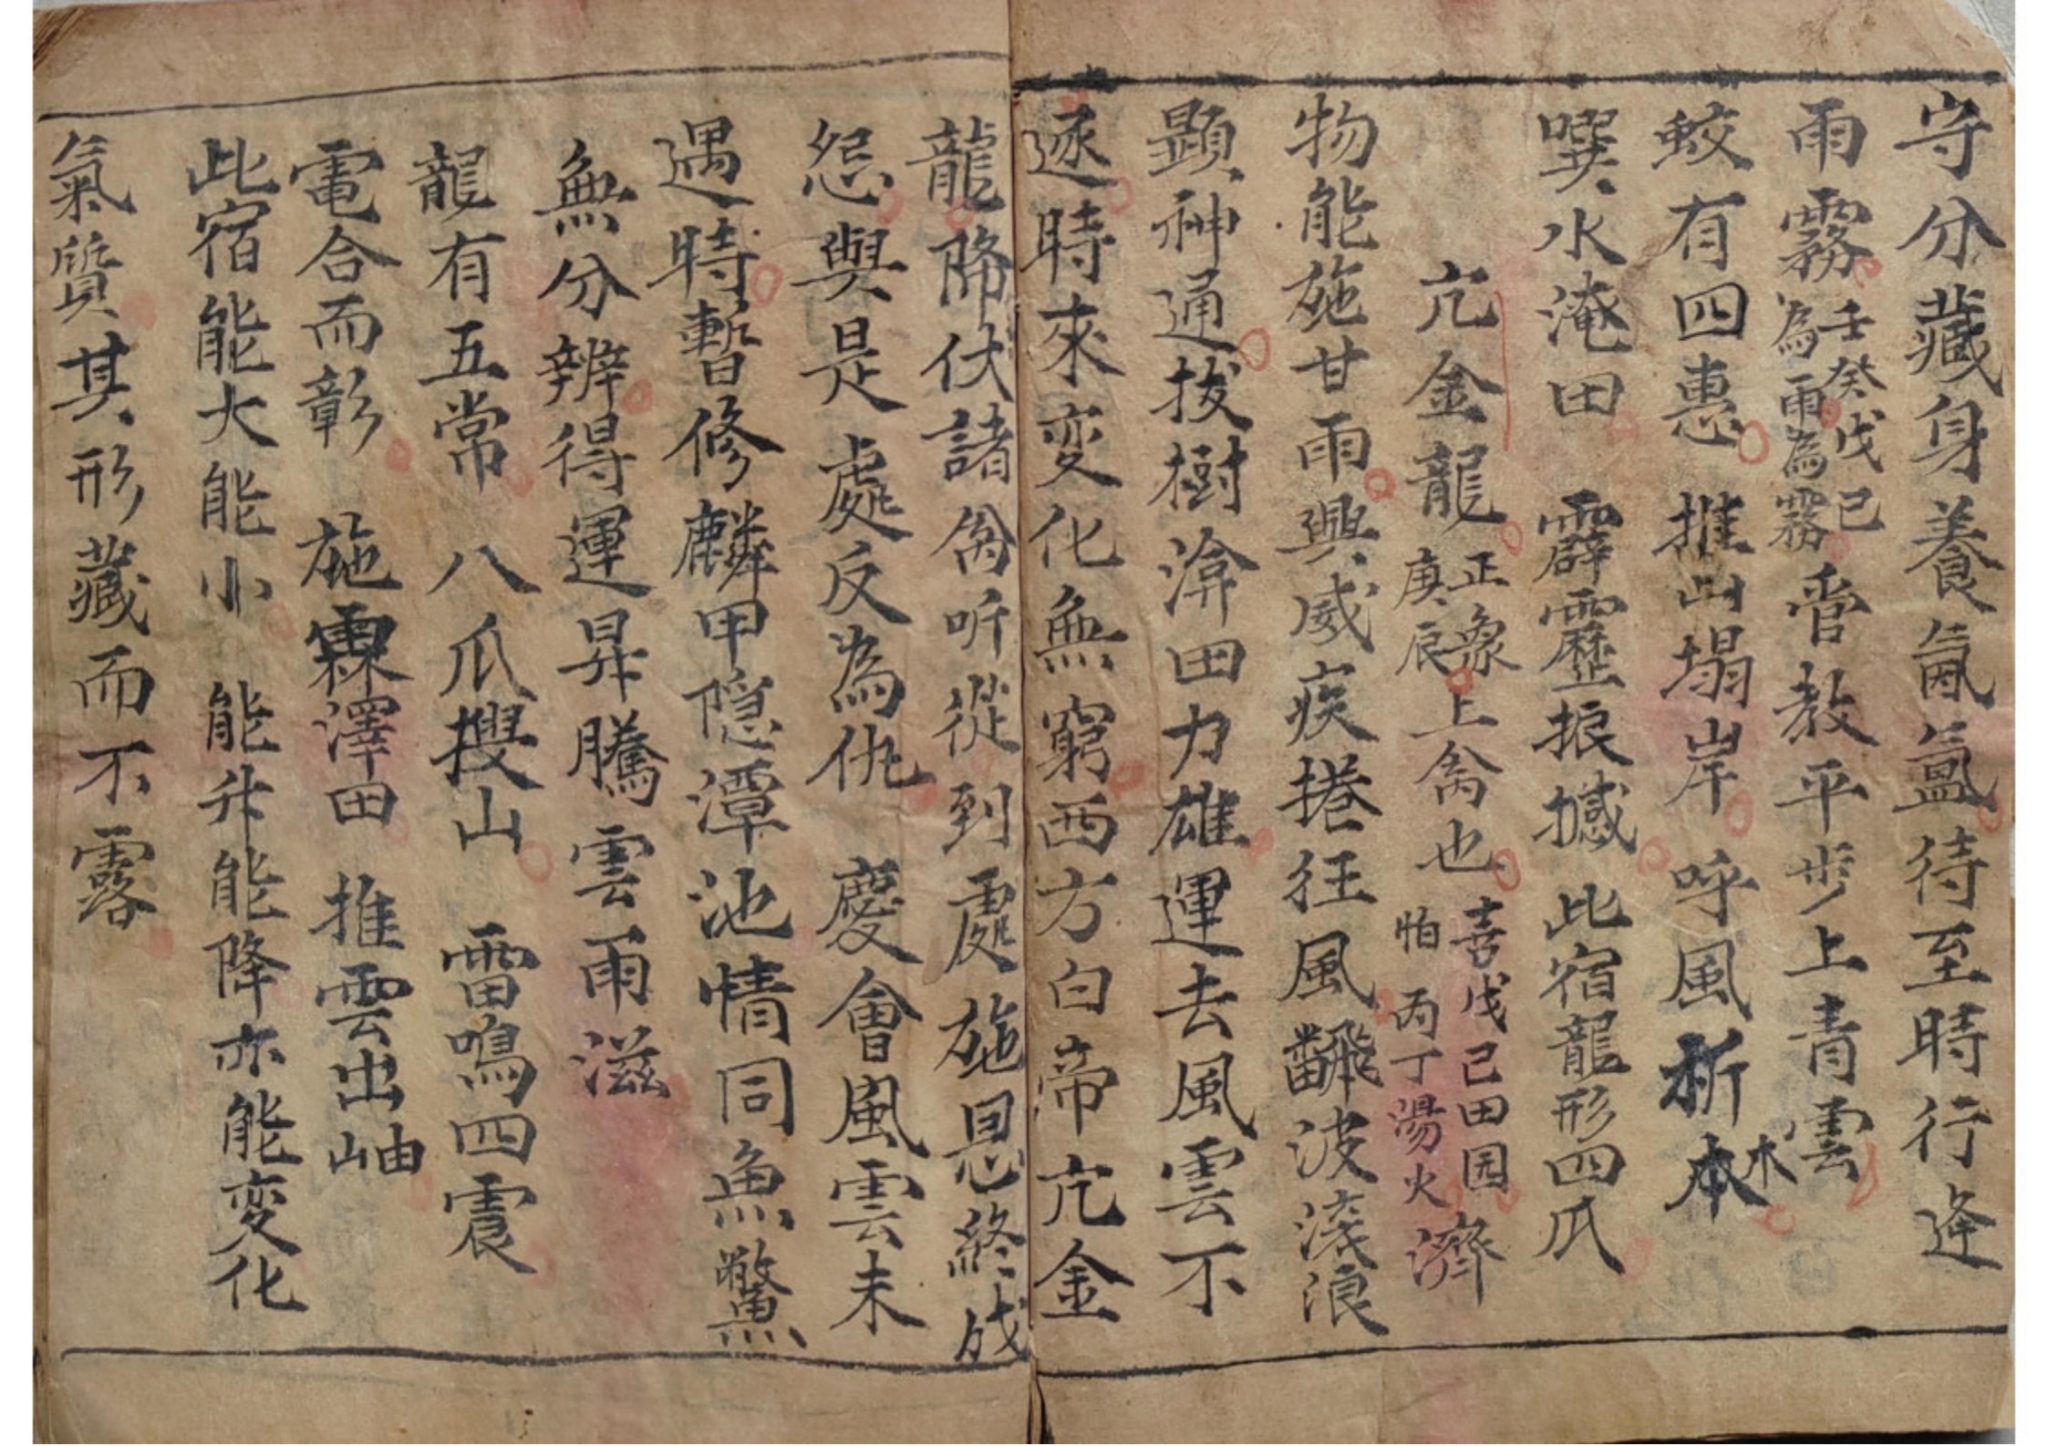 守分藏身養氤氳待至時行逢
雨霧壬癸戊己為雨為霧管教平步上青雲
蛟有四惠推山塌岸呼風折本木
噀水淹田霹靂掁撼此宿龍形四爪
亢金龍正象庚辰上禽也喜戊己田园怕丙丁湯火濟
物能施甘雨興威疾捲狂風飜波滾浪
顕神通拔樹渰田力雄運去風雲不
逐時來変化無窮西方白帝亢金
龍降伏諸禽听從到處施恩終成
怨與是處反為仇慶會風雲未
遇特暫修麟甲隐潭池情同魚鱉
無分辨得運昇騰雲雨滋
龍有五常八爪搜山雷鳴四震
電合而彰施霖澤田推雲出岫
此宿能大能小能升能降亦能変化
氣質其形藏而不露